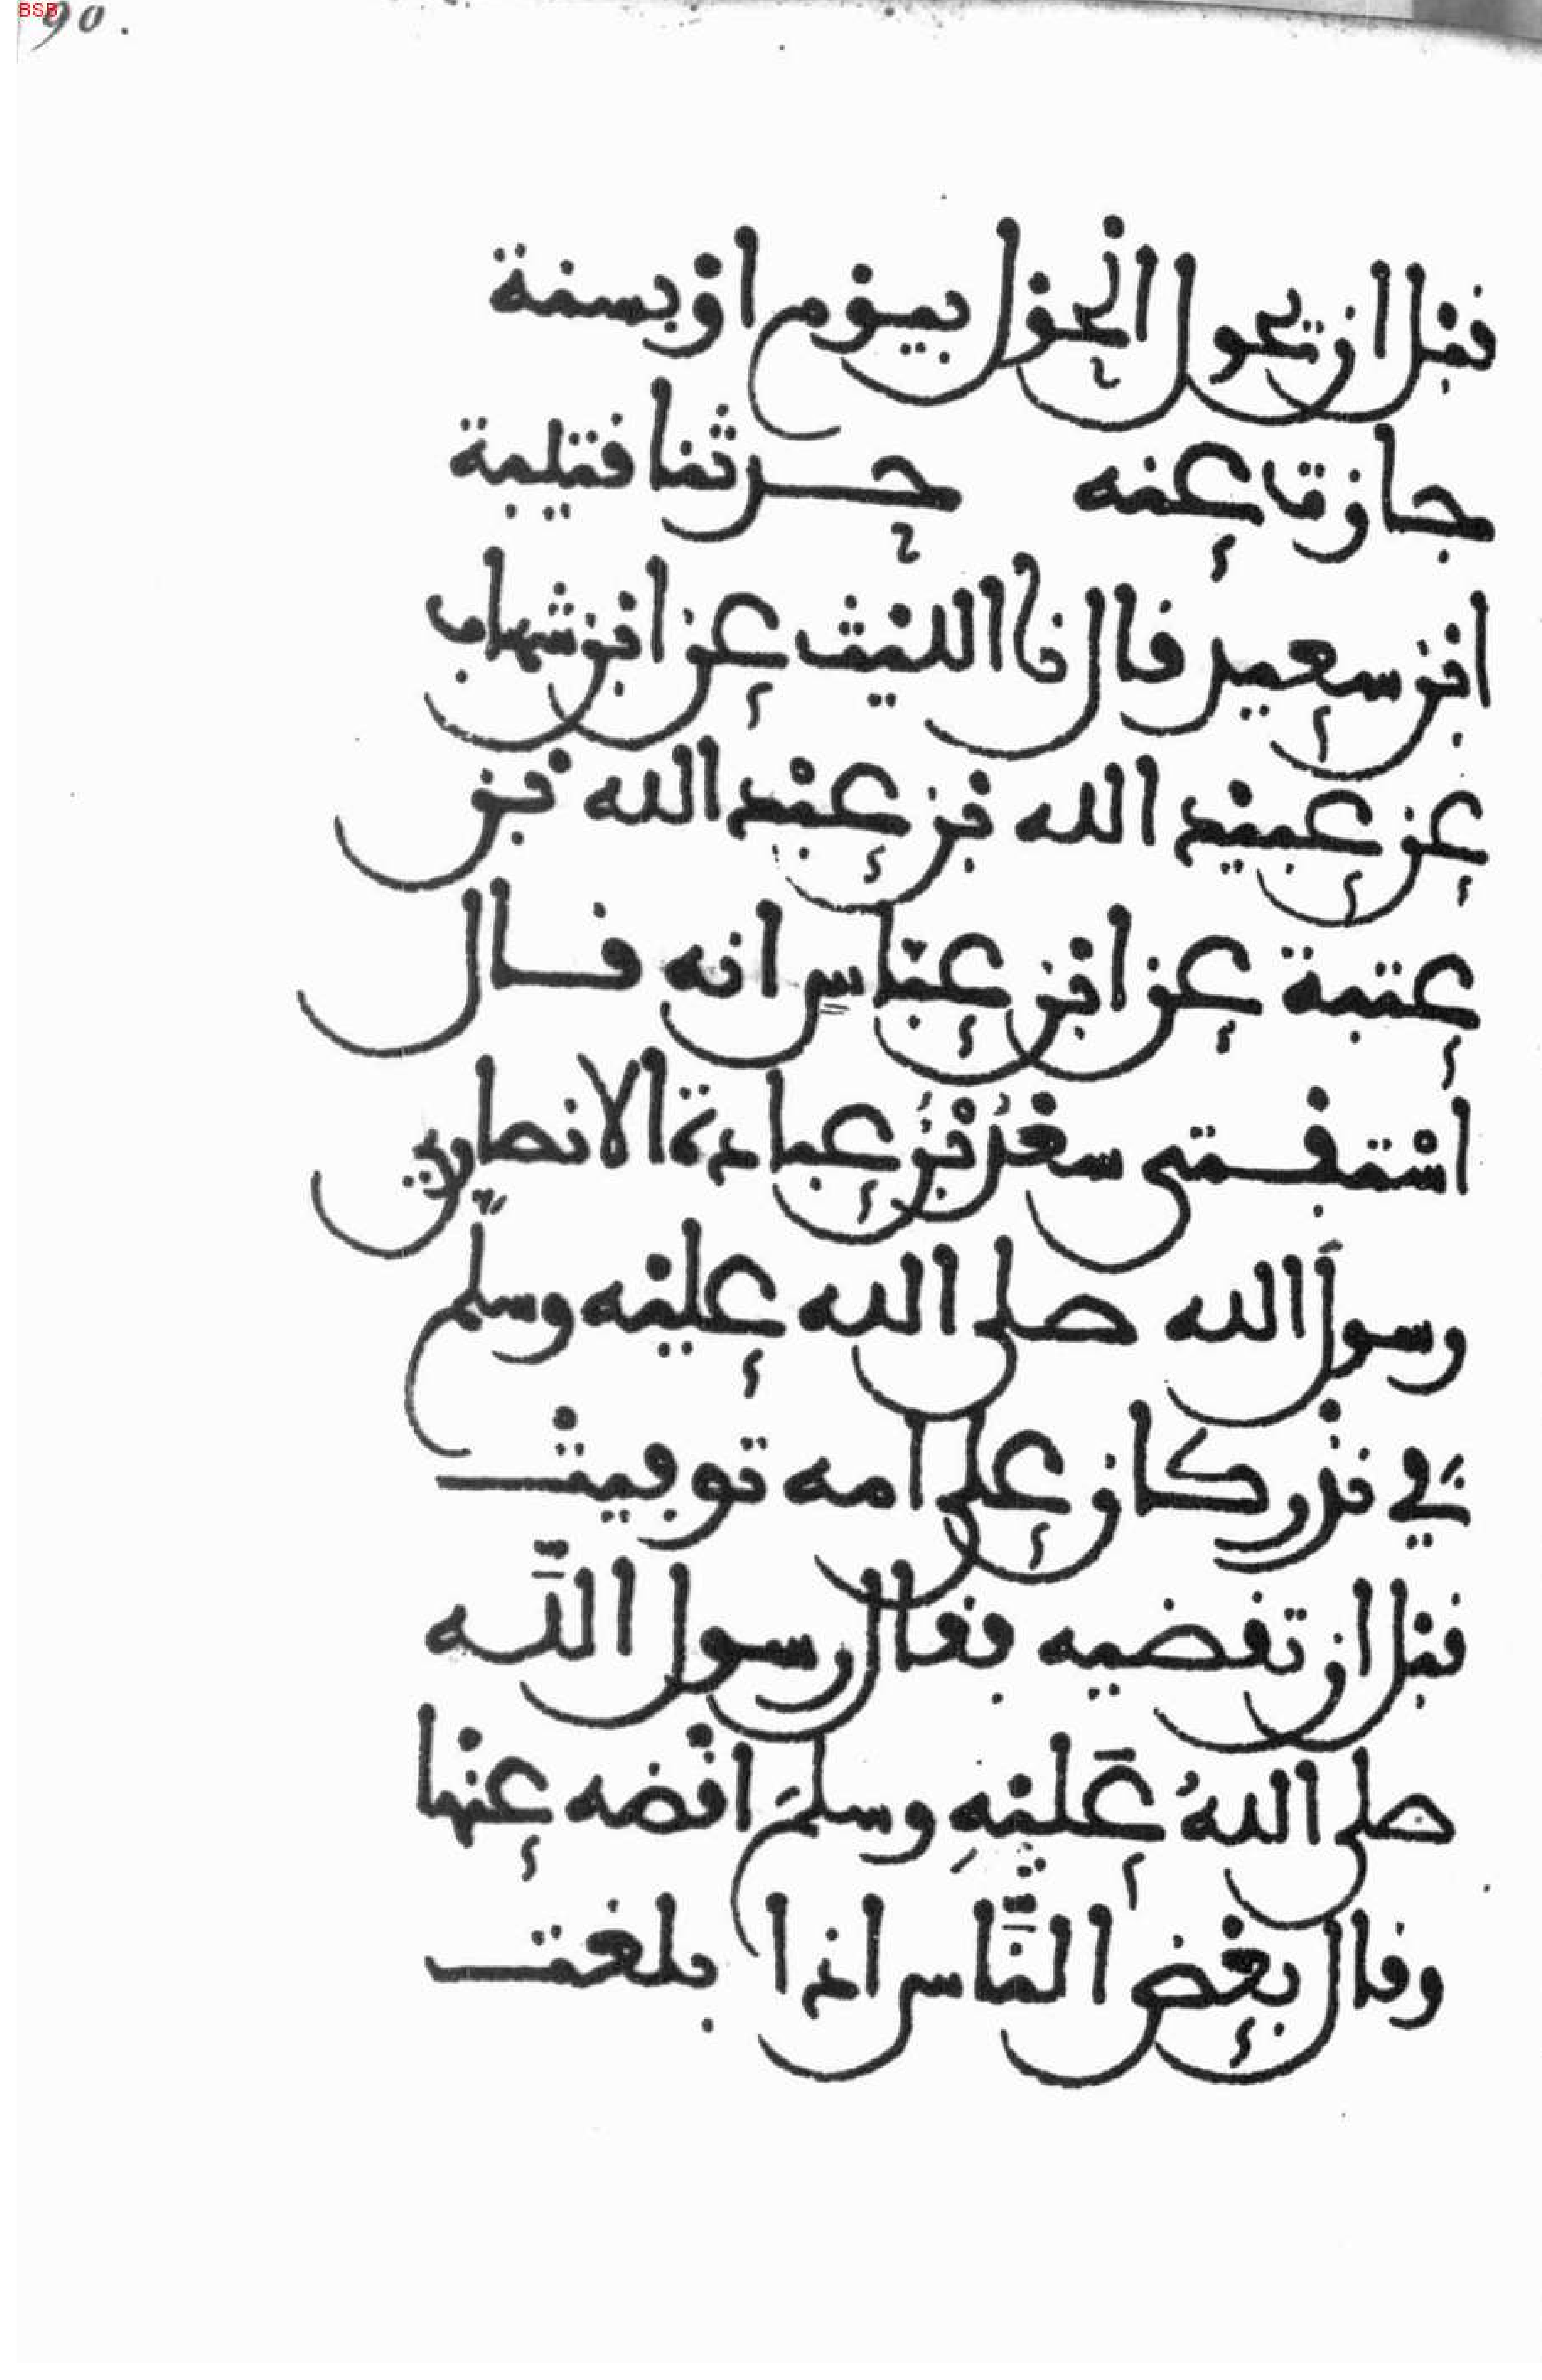 90.
قبل ان يحول الحول بيوم او بسنة
جازت عنه حدثنا قتيبة
ابن سعيد قال نا الليث عن ابن شهاب
عن عبيد الله بن عبد الله بن
عتبة عن ابن عباس انه قال
استفتى سعدُ بنُ عبادة الانصاري
رسولَ الله صلى الله عليه وسلم
في نذر كان على امه توفيت
قبل ان تقضيه فقال رسول اللَّه
صلى اللهُ عَليْهِ وسلمَ اقضه عنها
وقال بعض النَّاس اذا بلغت